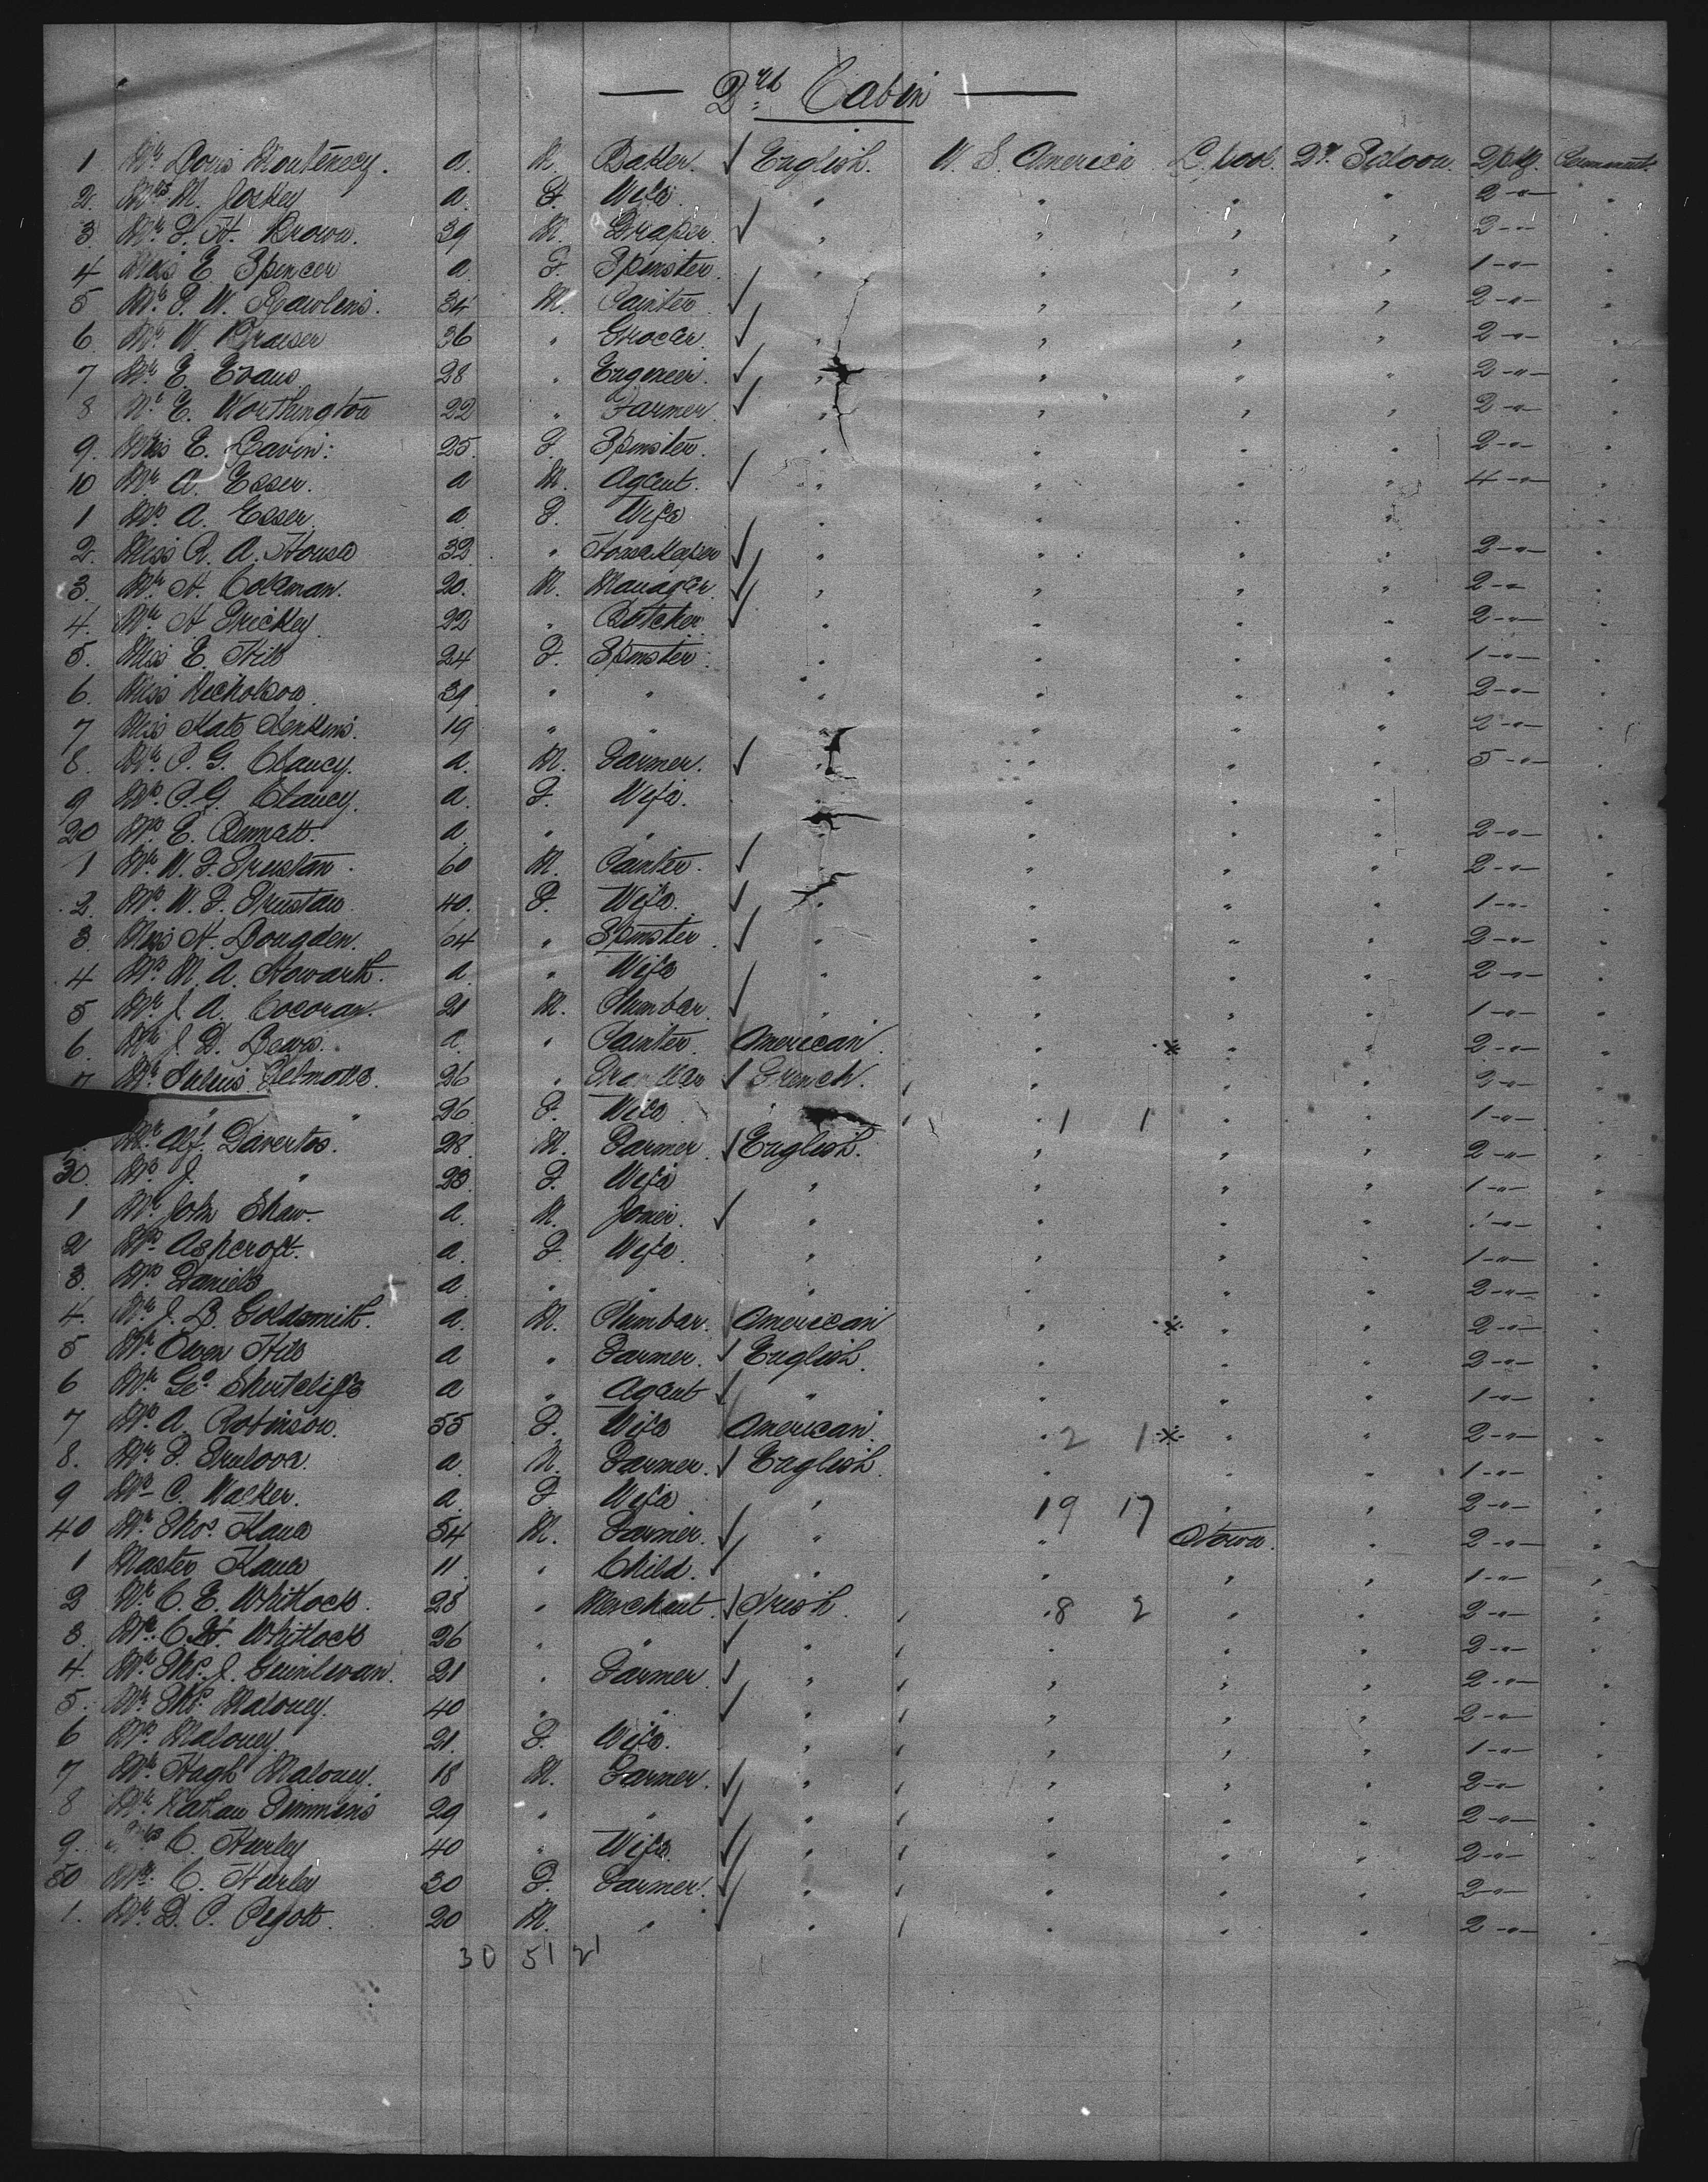 2nd Cabin
1 Mr Montenecy. a. M. Baker. English. U. S. America L.pool. 2nd Saloon. 2 pkg. Permanent.
2. Mrs M. a. F. Wife. " " " " 2-"- "
3. Mr F. H. Brown. 39 M. Draper. " " " " 2-"- "
4 Miss E. Spencer a F. Spinster. " " " " 1-"- "
5 Mr F. W. Rawlins. 34 M. Painter " " " " 2-"- "
6. Mr W. 36 " Grocer. " " " " 2-"- "
7 Mr E. Evans. 28 " Engineer. " " " " 2-"- "
8 Mr E. Worthington 22 " Farmer. " " " " 2-"- "
9. Miss E. Gavin. 25. F. Spinster. " " " " 2-"- "
10 Mr A. Esser. a M. Agent. " " " " 4-"- "
1 Mrs A. Esser. a F. Wife " " " "
2. Miss R. A. House 32. " Housekeeper " " " " 2-"- "
3. Mr H. Coleman. 20. M. Manager. " " " " 2-"- "
4. Mr H 22 " Butcher " " " " 2-"- "
5. Miss E. Hill 24 F. Spinster. " " " " 1-"- "
6. Miss Nicholson. 39 " " " " " " 2-"- "
7 Miss Kate Jenkins. 19 " " " " " " 2-"- "
8. Mr P. G. Clancy. a. M. Farmer. " " " " 5-"- "
9 Mrs P. G. Clancy. a. F. Wife. " " " " "
20 Mrs E. Bennett. a. " " " " " " 2-"- "
1 Mr W. F. Trustan. 60 M. Painter. " " " " 2-"- "
2. Mrs W. F. Trustan 40. F. Wife. " " " " 1-"- "
3 Miss H. Dougden. 64 " Spinster " " " " 2-"- "
4 Mrs M. A. Howarth. a. " Wife " " " " 2-"- "
5 Mr J. A. Cocoran. 21 M. Plumber. " " " " 1-"- "
6. Mr J. D. Lewis. a. " Painter American " * " " 2-"- "
7 Mr Julius 26 " French. " " " 2-"- "
" " 26 F. Wife " 1 1 " " 1-"- "
Mr Alf. Daventos. 28. M. Farmer. English. " " " 2-"- "
30. Mrs J. " 23 F. Wife " " " " 1-"- "
1 Mr John Shaw. a. M. Joiner. " " " " 1-"- "
2 Mrs Ashcroft. a. F. Wife. " " " " 1-"- "
3. Mrs Daniels a. " " " " " " 2-"- "
4. Mr J. B. Goldsmith. a. M. Plumber. American " * " " 2-"- "
5 Mr Owen Hill a " Farmer. English. " " " 2-"- "
6 Mr Geo Shutcliffe a " Agent " " " " 1-"- "
7 Mrs A. Robinson. 55 F. Wife American. " 2 1 * " " 2-"- "
8. Mr F. Trulove. a. M. Farmer. English. " " " 1-"- "
9 Mrs C. Walker. a. F. Wife " 19 17 " " 2-"- "
40 Mr Thos. Kane 54 M. Farmer. " " Q'town. " 2-"- "
1 Master Kane 11. " Child. " " " " 1-"- "
2 Mr C. E. Whitlock. 28 " Merchant. Irish. " 8 2 " " 2-"- "
3. Mr C. H. Whitlock 26 " " " " " " 2-"- "
4. Mr Thos. J. 21 " Farmer. " " " " 2-"- "
5. Mr Thos. Maloney. 40 " " " " " " 2-"- "
6 Mrs Maloney. 21. F. Wife. " " " " 1-"- "
7 Mr Hugh Maloney. 18 M. Farmer. " " " " 2-"- "
8 Mr Nathan Simmins 29 " " " " " " 2-"- "
9. Mrs C. Hurley 40 " Wife. " " " " 2-"- "
50 Mr C. Hurley 30 F. Farmer. " " " " 2-"- "
1. Mr D. P. Pigott. 20 M. " " " " " 2-"- "
30 51 21